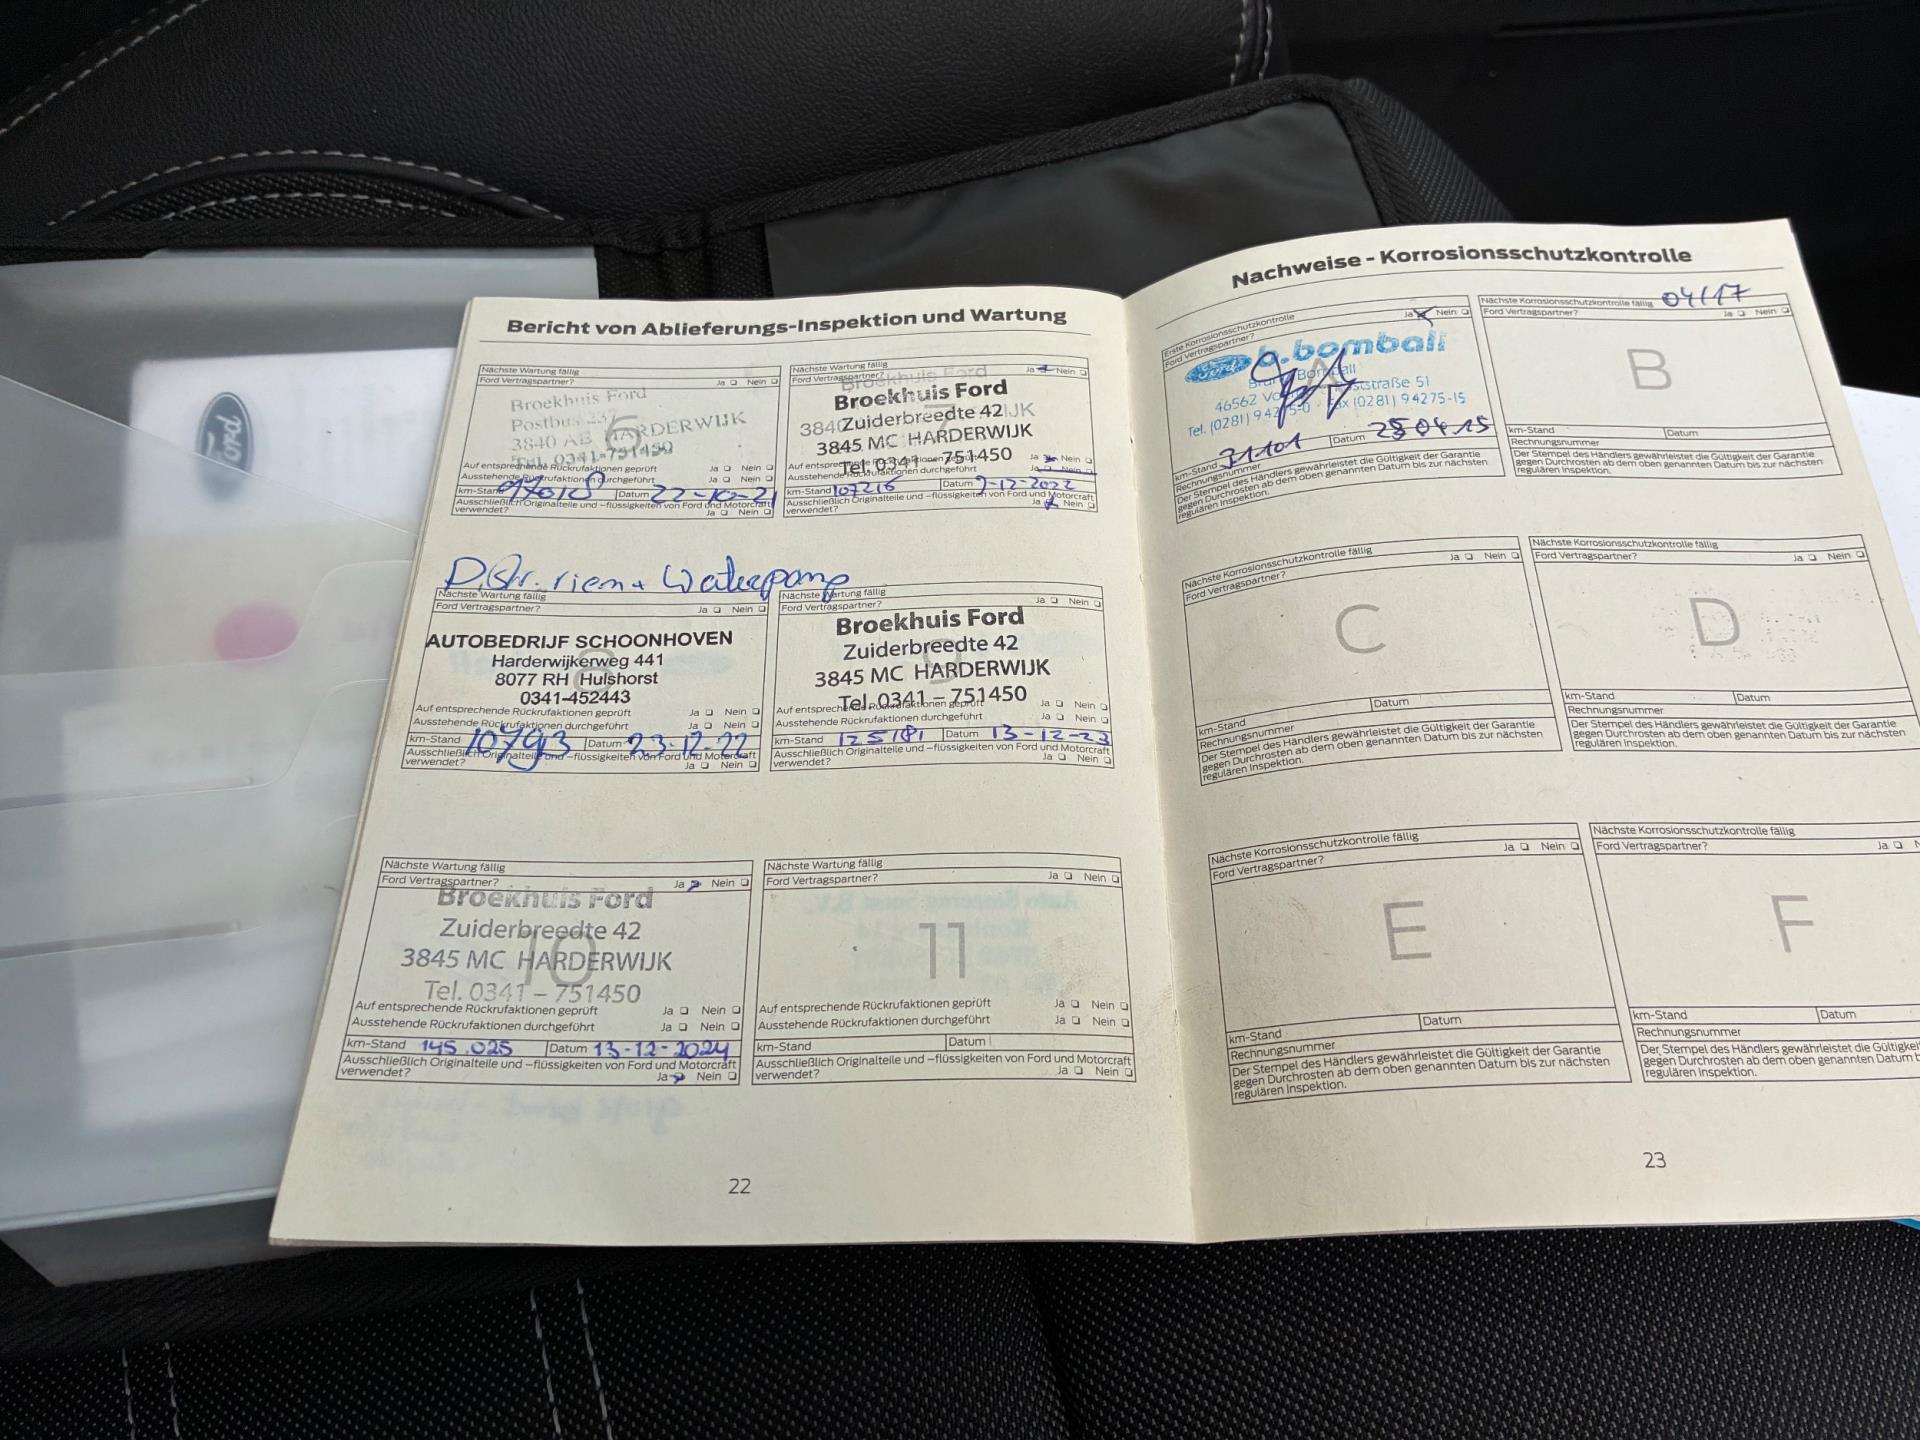 Ford
Bericht von Ablieferungs-Inspektion und Wartung
Nächste Wartung fällig
Ford Vertragspartner? Ja Nein
6
Broekhuis Ford
Postbus 237
3840 AB HARDERWIJK
Tel. 0341-751450
Auf entsprechende Rückrufaktionen geprüft Ja Nein
Ausstehende Rückrufaktionen durchgeführt Ja Nein
km-Stand Datum 22-10-21
Ausschließlich Originalteile und -flüssigkeiten von Ford und Motorcraft
verwendet? Ja Nein
Nächste Wartung fällig
Ford Vertragspartner? Ja Nein
7
Broekhuis Ford
Broekhuis Ford
Zuiderbreedte 42
3845 MC HARDERWIJK
Tel. 0341 - 751450
Auf entsprechende Rückrufaktionen geprüft Ja Nein
Ausstehende Rückrufaktionen durchgeführt Ja Nein
km-Stand 107216 Datum 9-12-2022
Ausschließlich Originalteile und -flüssigkeiten von Ford und Motorcraft
verwendet? Ja Nein
riem + Waterpomp
Nächste Wartung fällig
Ford Vertragspartner? Ja Nein
8
AUTOBEDRIJF SCHOONHOVEN
Harderwijkerweg 441
8077 RH Hulshorst
0341-452443
Auf entsprechende Rückrufaktionen geprüft Ja Nein
Ausstehende Rückrufaktionen durchgeführt Ja Nein
km-Stand Datum 23-12-22
Ausschließlich Originalteile und -flüssigkeiten von Ford und Motorcraft
verwendet? Ja Nein
Nächste Wartung fällig
Ford Vertragspartner? Ja Nein
9
Broekhuis Ford
Zuiderbreedte 42
3845 MC HARDERWIJK
Tel. 0341 - 751450
Auf entsprechende Rückrufaktionen geprüft Ja Nein
Ausstehende Rückrufaktionen durchgeführt Ja Nein
km-Stand 125181 Datum 13-12-23
Ausschließlich Originalteile und -flüssigkeiten von Ford und Motorcraft
verwendet? Ja Nein
Nächste Wartung fällig
Ford Vertragspartner? Ja Nein
10
Broekhuis Ford
Zuiderbreedte 42
3845 MC HARDERWIJK
Tel. 0341 - 751450
Auf entsprechende Rückrufaktionen geprüft Ja Nein
Ausstehende Rückrufaktionen durchgeführt Ja Nein
km-Stand 145.025 Datum 13-12-2024
Ausschließlich Originalteile und -flüssigkeiten von Ford und Motorcraft
verwendet? Ja Nein
Nächste Wartung fällig
Ford Vertragspartner? Ja Nein
11
Auf entsprechende Rückrufaktionen geprüft Ja Nein
Ausstehende Rückrufaktionen durchgeführt Ja Nein
km-Stand Datum
Ausschließlich Originalteile und -flüssigkeiten von Ford und Motorcraft
verwendet? Ja Nein
22
Nachweise - Korrosionsschutzkontrolle
Erste Korrosionsschutzkontrolle Ja Nein
Ford Vertragspartner?
Ford b.bomball
Bruno Bomball
46562
Tel. (0281) 94275-0 Fax (0281) 94275-15
km-Stand 31101 Datum 28 04 15
Rechnungsnummer
Der Stempel des Händlers gewährleistet die Gültigkeit der Garantie
gegen Durchrosten ab dem oben genannten Datum bis zur nächsten
regulären Inspektion.
Nächste Korrosionsschutzkontrolle fällig 04/17
Ford Vertragspartner? Ja Nein
B
km-Stand Datum
Rechnungsnummer
Der Stempel des Händlers gewährleistet die Gültigkeit der Garantie
gegen Durchrosten ab dem oben genannten Datum bis zur nächsten
regulären Inspektion.
Nächste Korrosionsschutzkontrolle fällig
Ford Vertragspartner? Ja Nein
C
km-Stand Datum
Rechnungsnummer
Der Stempel des Händlers gewährleistet die Gültigkeit der Garantie
gegen Durchrosten ab dem oben genannten Datum bis zur nächsten
regulären Inspektion.
Nächste Korrosionsschutzkontrolle fällig
Ford Vertragspartner? Ja Nein
D
km-Stand Datum
Rechnungsnummer
Der Stempel des Händlers gewährleistet die Gültigkeit der Garantie
gegen Durchrosten ab dem oben genannten Datum bis zur nächsten
regulären Inspektion.
Nächste Korrosionsschutzkontrolle fällig
Ford Vertragspartner? Ja Nein
E
km-Stand Datum
Rechnungsnummer
Der Stempel des Händlers gewährleistet die Gültigkeit der Garantie
gegen Durchrosten ab dem oben genannten Datum bis zur nächsten
regulären Inspektion.
Nächste Korrosionsschutzkontrolle fällig
Ford Vertragspartner? Ja
F
km-Stand Datum
Rechnungsnummer
Der Stempel des Händlers gewährleistet die Gültigkeit
gegen Durchrosten ab dem oben genannten Datum
regulären Inspektion.
23